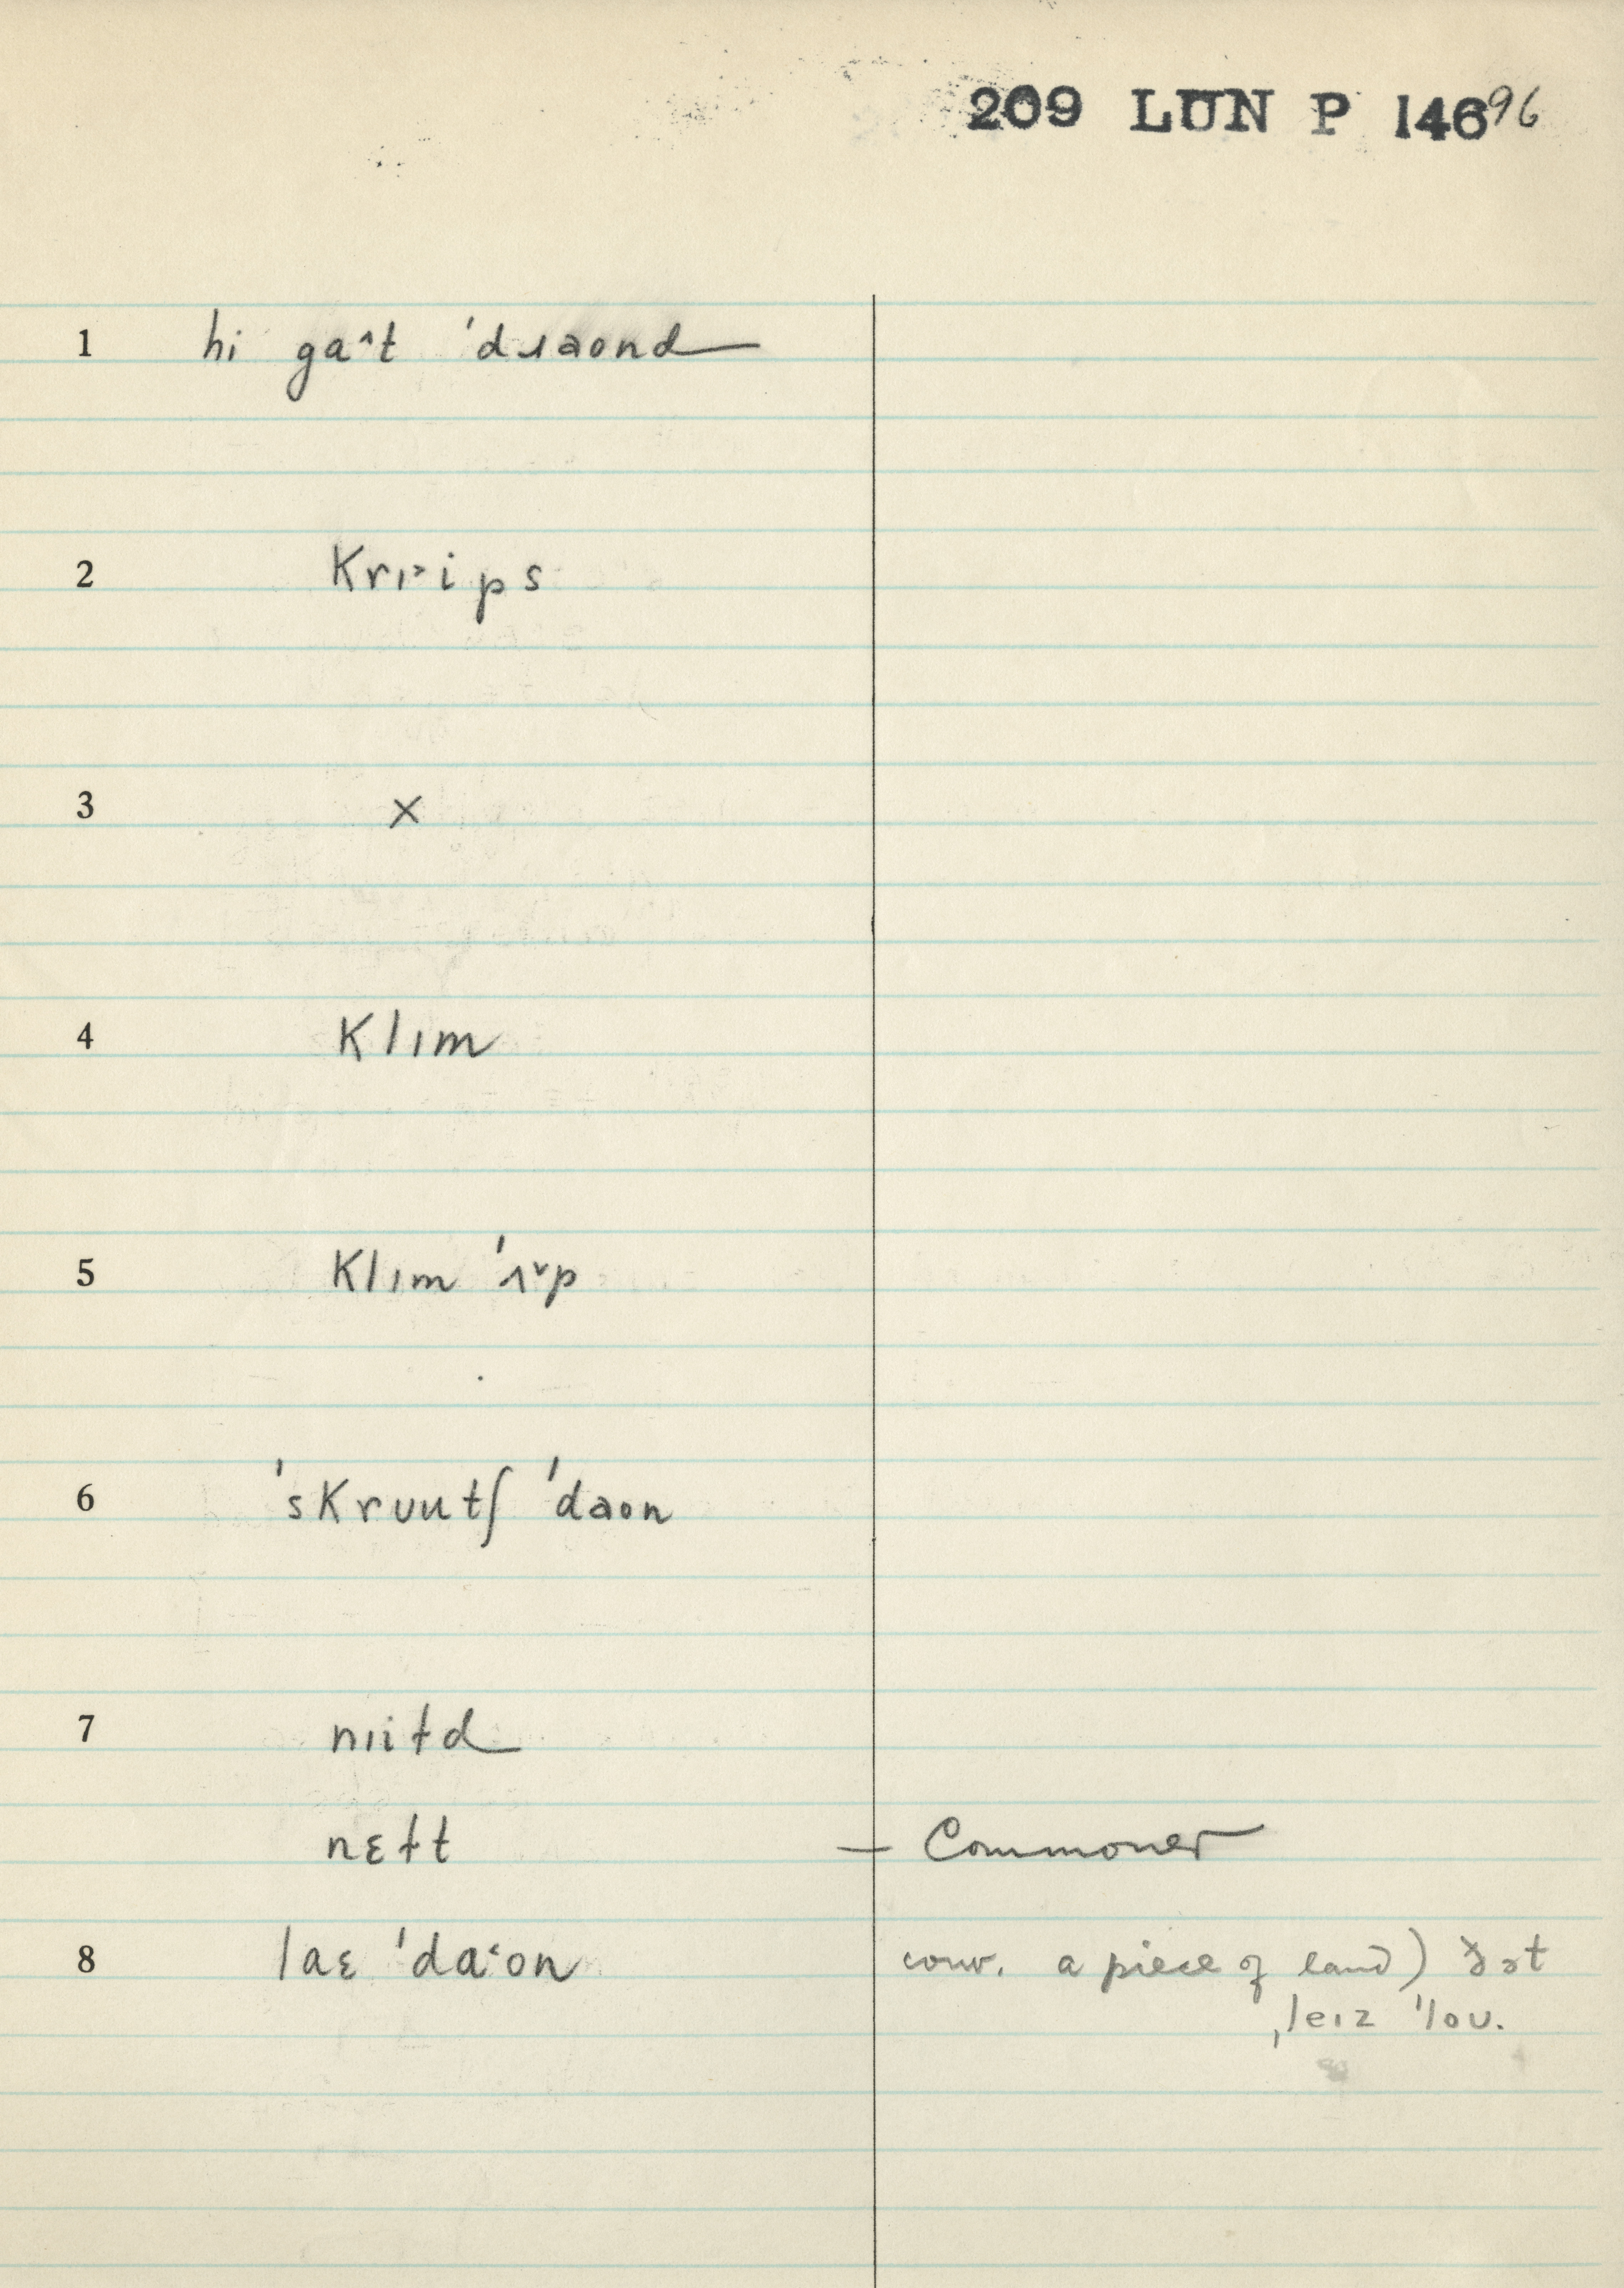 209 LUN P 146 96
1 hi gaˆt 'dɹaond
2 krɪ˃ips
3 ×
4 klɪm
5 klɪm 'ʌ˅p
6 'skruutʃ 'daon
7 nɪitd
nɛɫt — Commoner
8 laɛ 'da˂on conv. a piece of land) ðət
ˌleɪz 'loʊ.